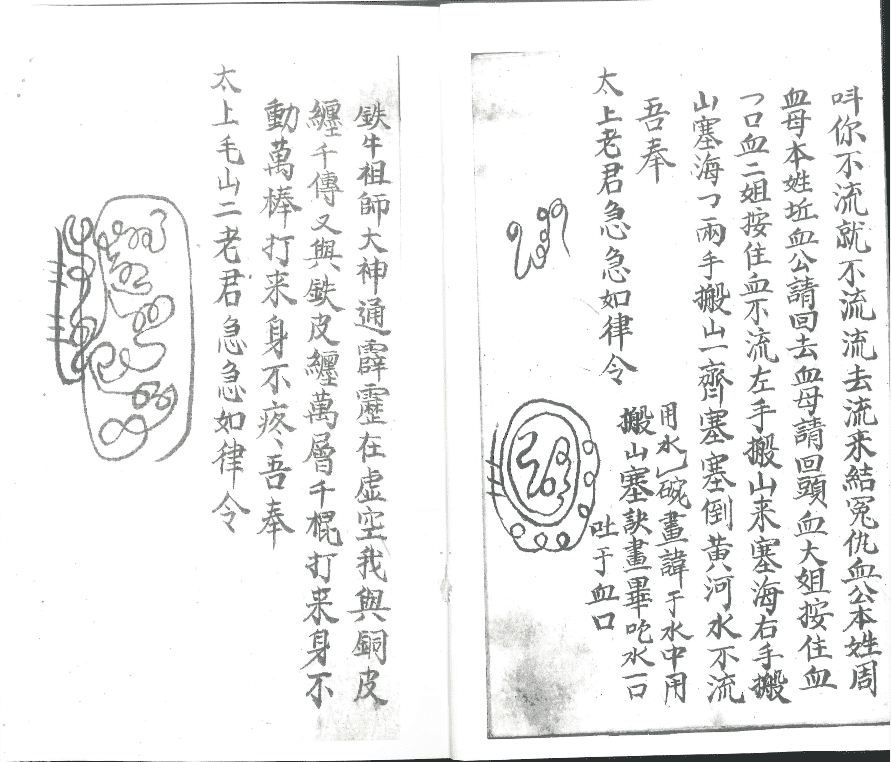 呌你不流就不流流去流来結冤仇血公本姓周
血母本姓坵血公請回去血母請回頭血大姐按住血
乛口血二姐按住血不流左手搬山来塞海右手搬
山塞海乛兩手搬山一齊塞塞倒黄河水不流
吾奉
太上老君急急如律令
用水乚碗畫諱于水中用
搬山塞訣畫畢吃水一口
吐于血口
鉄牛祖師大神通霹靂在虛空我與銅皮
纏千傳又與鉄皮纏萬層千棍打来身不
動萬棒打来身不疼、吾奉
太上毛山二老君急急如律令